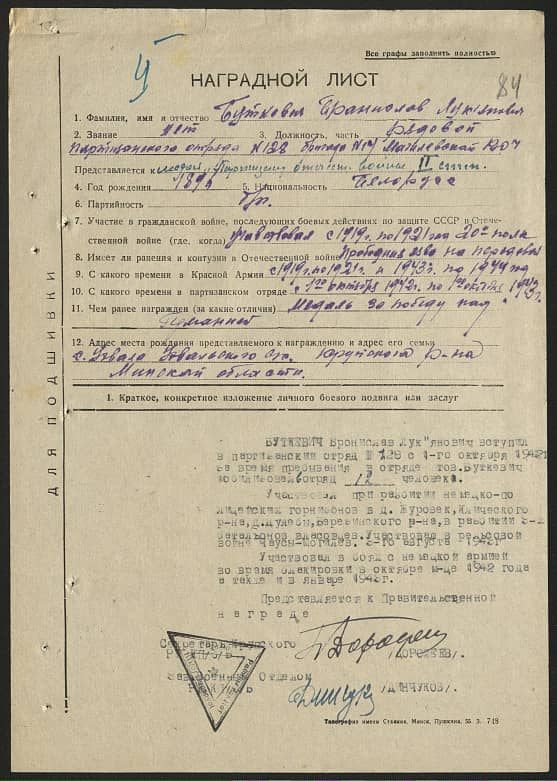 Все графы заполнить полностью
Ч
84
НАГРАДНОЙ ЛИСТ
1. Фамилия, имя и отчество Буткевич Бронислов Лукянович
2. Звание нет 3. Должность, часть Рядовой
партизанского отряда №128 бригада №14 Могилевской ВОЧ
Представляется к медал. Партизану отечест. войны II степ.
4. Год рождения 189 5. Национальность Белорусс
6. Партийность б/п.
7. Участие в гражданской войне, последующих боевых действиях по защите СССР в Отече-
ственной войне (где, когда) участвовал с 1919 г. по 1921 год 20 полк
8. Имеет ли ранения и контузии в Отечественной войне на передовой
9. С какого времени в Красной Армии с 1919 г. по 1921 г. и 1943 г. по 1944 год
10. С какого времени в партизанском отряде с 1го октября 1942 г. по 1943 г.
11. Чем ранее награжден (за какие отличия) Медаль за победу над
Германией
12. Адрес места рождения представляемого к награждению и адрес его семьи
с. Ухвала Ухвальского с/с. Крупского р-на
Минской области.
1. Краткое, конкретное изложение личного боевого подвига или заслуг
ДЛЯ ПОДШИВКИ
БУТКЕВИЧ Бронислав Лук"янович вступил
в партизанский отряд № 128 с 1-го октября 1942г
За время пребывания в отряде тов. Буткевич
мобилизовал в отряд 12 человека.
Участвовал при разбитии немецко-по
лицейских горнизонов в д. Журовек, Кличевского
р-на, д. Дулебы, Березинского р-на, в разбитии 3-х
батальонов власовцев. Участвовив в рельсовой
войне Чаусы-Могилев. 3-го августа 1943г
Участвовал в боях с немецкой армией
во время блакировки в октябре м-це 1942 года
а также и в январе 1943г.
Представляется к Правительственной
награде
Секретарь Крупского
РК КП/б/Б /ДОРОФЕЕВ/.
Зав. Военным Отделом
РК КП/б/Б /ДИНЧУКОВ/.
Типография имени Сталина, Минск, Пушкина, 55. З. 748